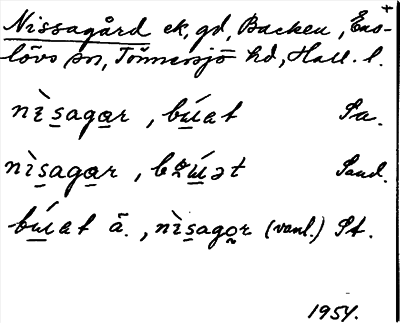 Nissagård ek, gd, Backen, Ens-
lövs sn, Tönnersjö hd, Hall. l.
nìsagar, búat Sa.
nìsagar, bzúət Sand.
búat ä., nìsagọr (vanl.) St.
1954.